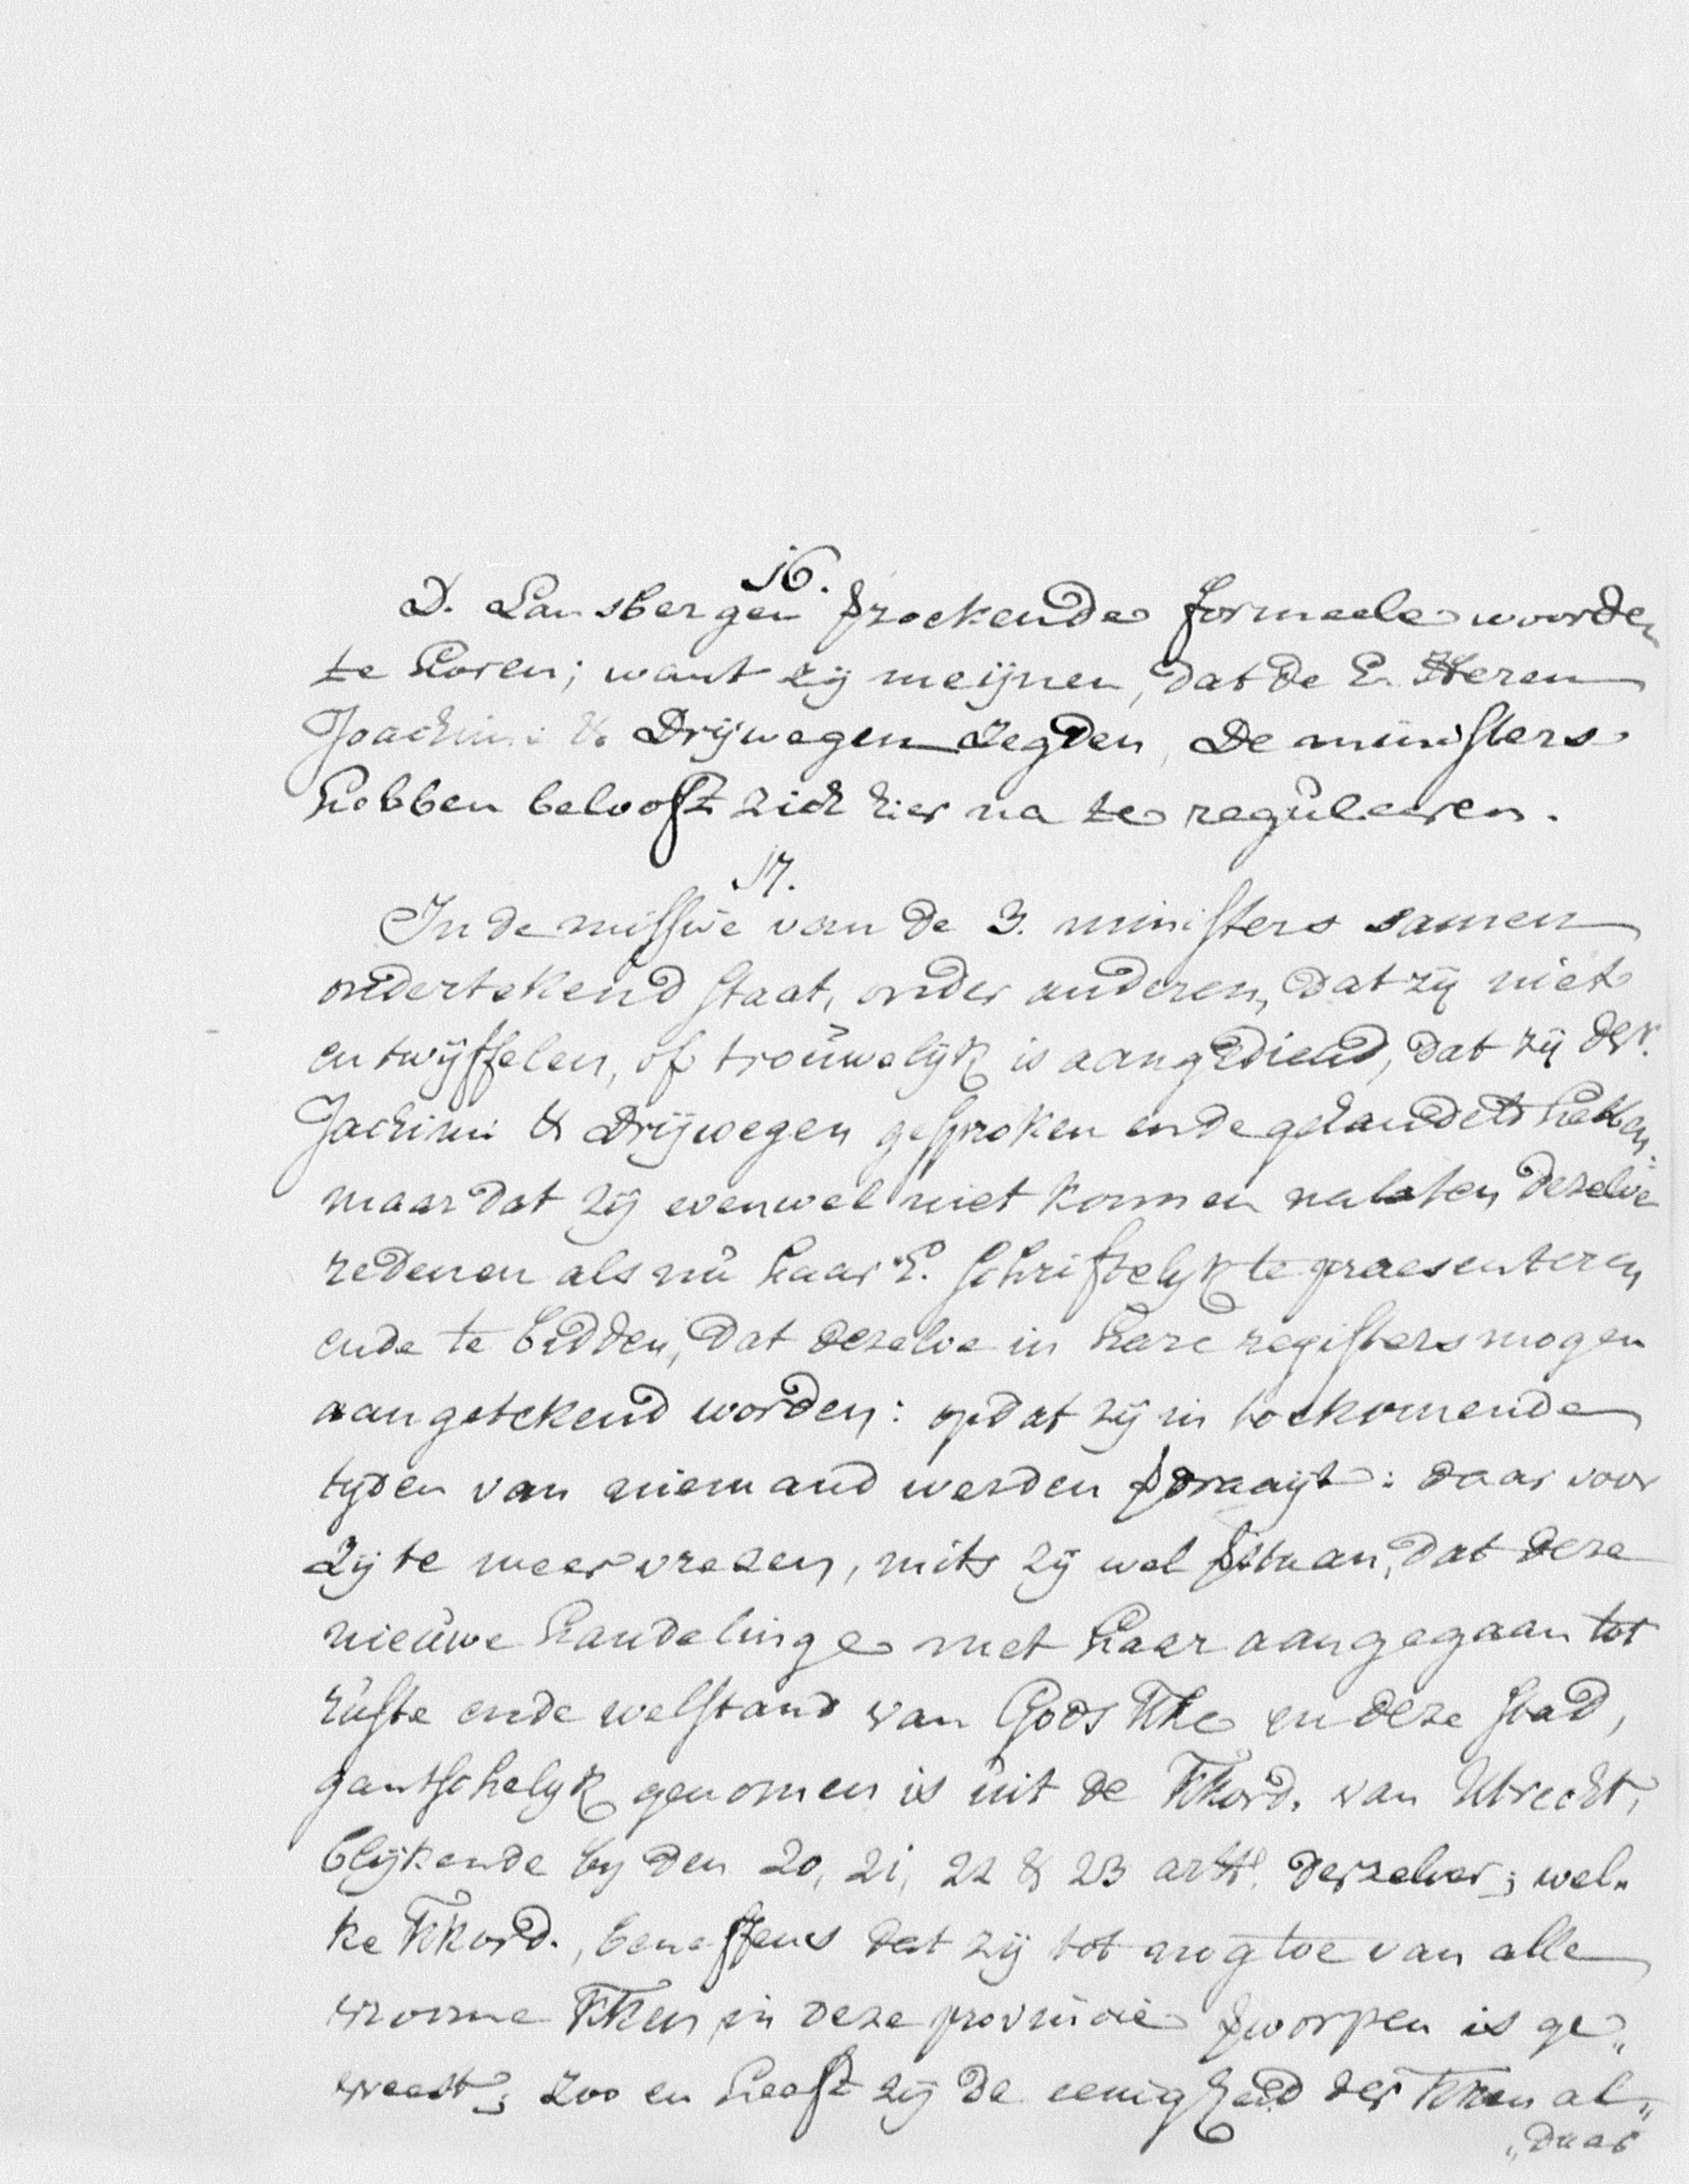 16.
D. Lansbergen sprockende formeele woorden
te horen; want zÿ meÿnen, dat de E. Heren
Joachimi & Drÿwegen zegden, De ministers
hebben belooft zich hier na te reguleeren.
17.
In de missive van de 3. ministers samen
ondertekend staat, onder anderen, dat zÿ niet
en twÿffelen, of trouwelÿk is aangediend, dat zÿ
Jachimi & Drÿwegen gesproken ende gehandelt hebben:
maar dat zÿ evenwel niet konnen nalaten dezelve
redenen als nu haar E. schriftelÿk te praesenteren
ende te bidden, dat dezelve in hare registers mogen
aangetekend worden: opdat zÿ in toekomende
tÿden van niemand werden : daar voor
zÿ te meer vrezen, mits zÿ wel , dat deze
nieuwe handelinge met haer aangegaan tot
ruste ende welstand van Gods Kke en deze stad,
gantschelÿk genomen is uit de Kkord. van Utrecht,
blÿkende bÿ den 20, 21, 22 & 23 artt. derzelver; wel„
ke Kkord., beneffens dat zÿ tot nog toe van alle
vrome Kken in deze provincie worpen is ge„
weest; zoo en heeft zÿ de eenigheid der Kken al„
„daar